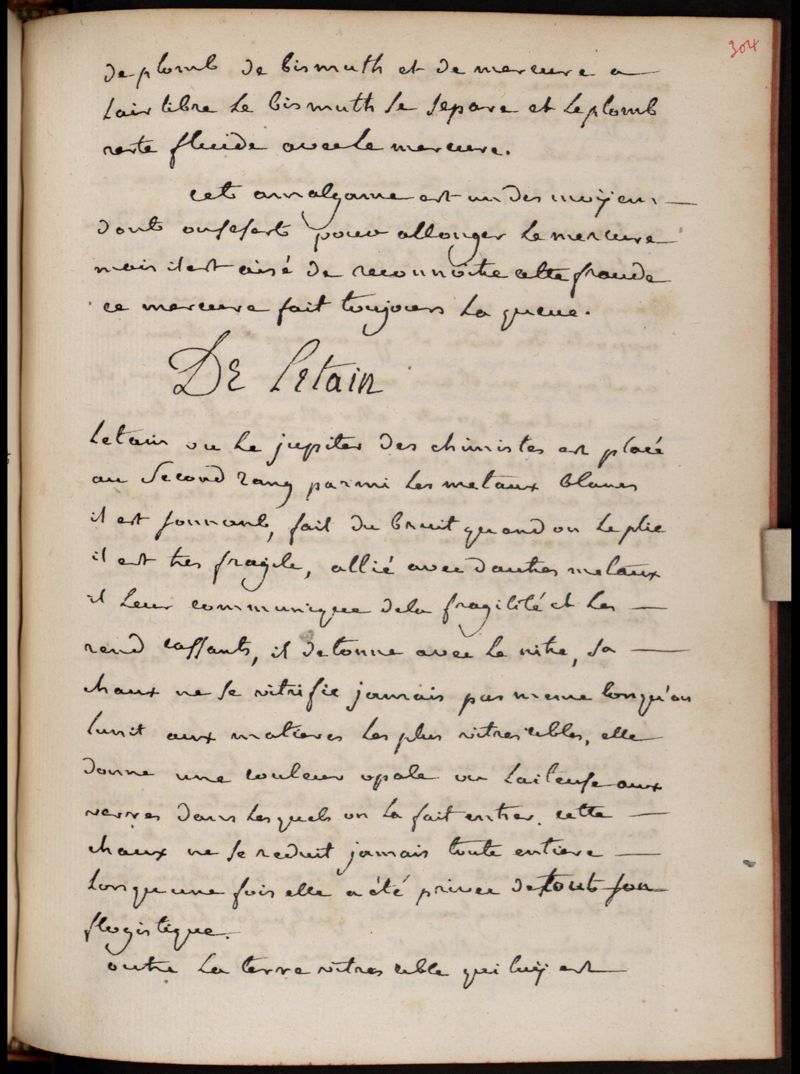 304
de plomb de bismuth et de mercure a
lair libre le bismuth se separe et le plomb
reste fluide avec le mercure.
cet amalgame est un des moyens
dont on se sert pour allonger le mercure
mais il est aisé de reconnoitre cette fraude
ce mercure fait toujours la queue.
De Letain
Letain ou le jupiter des chimistes est placé
au second rang parmi les metaux blancs
il est sonnant, fait du bruit quand on le plie
il est tres fragile, allié avec dautres metaux
il leur communique dela fragilité et les
rend cassants, il detonne avec le nitre, sa
chaux ne se vitrifie jamais pas meme lorsqu'on
lunit aux matieres les plus vitrescibles, elle
donne une couleur opale ou laiteuse aux
verres dans lesquels on la fait entrer. cette
chaux ne se reduit jamais toute entiere
lorsqu une fois elle a été privee de tout son
flogistique.
outre la terre vitrescible qui luy est